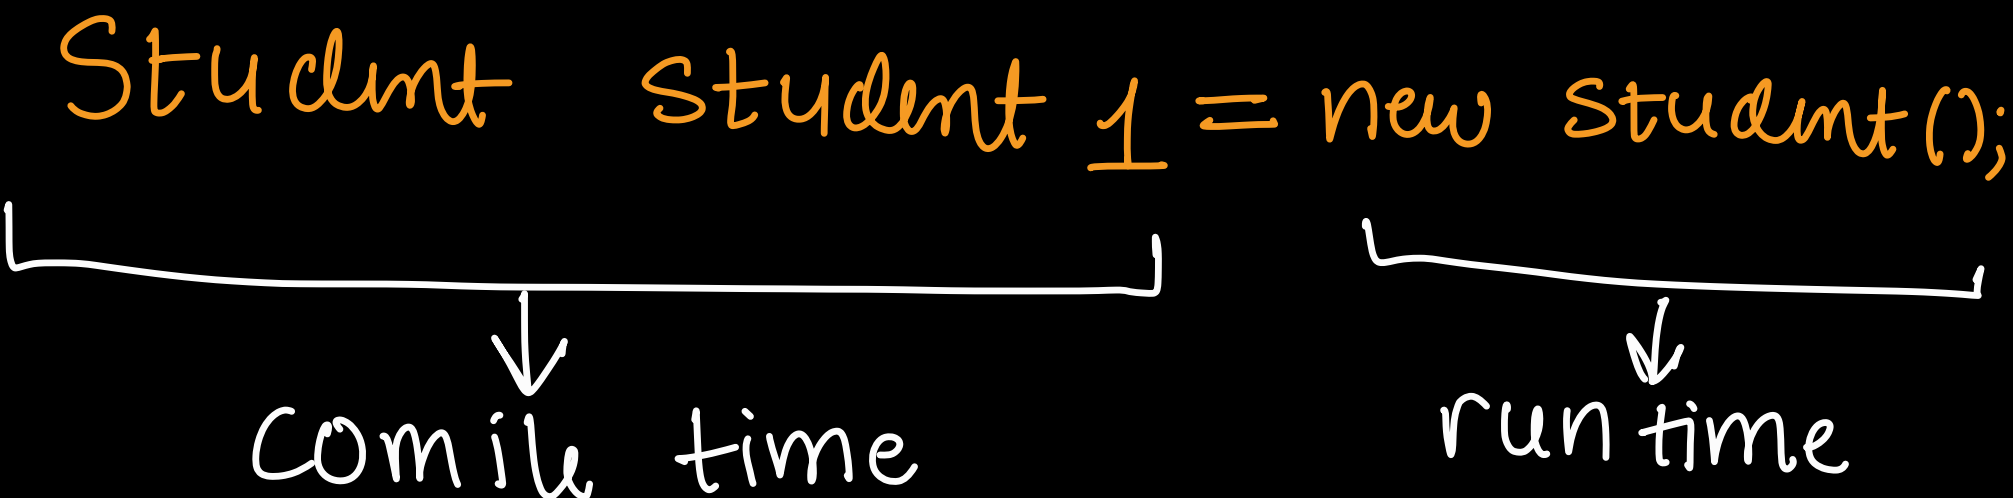 Student Student 1 = new student();
comile time run time